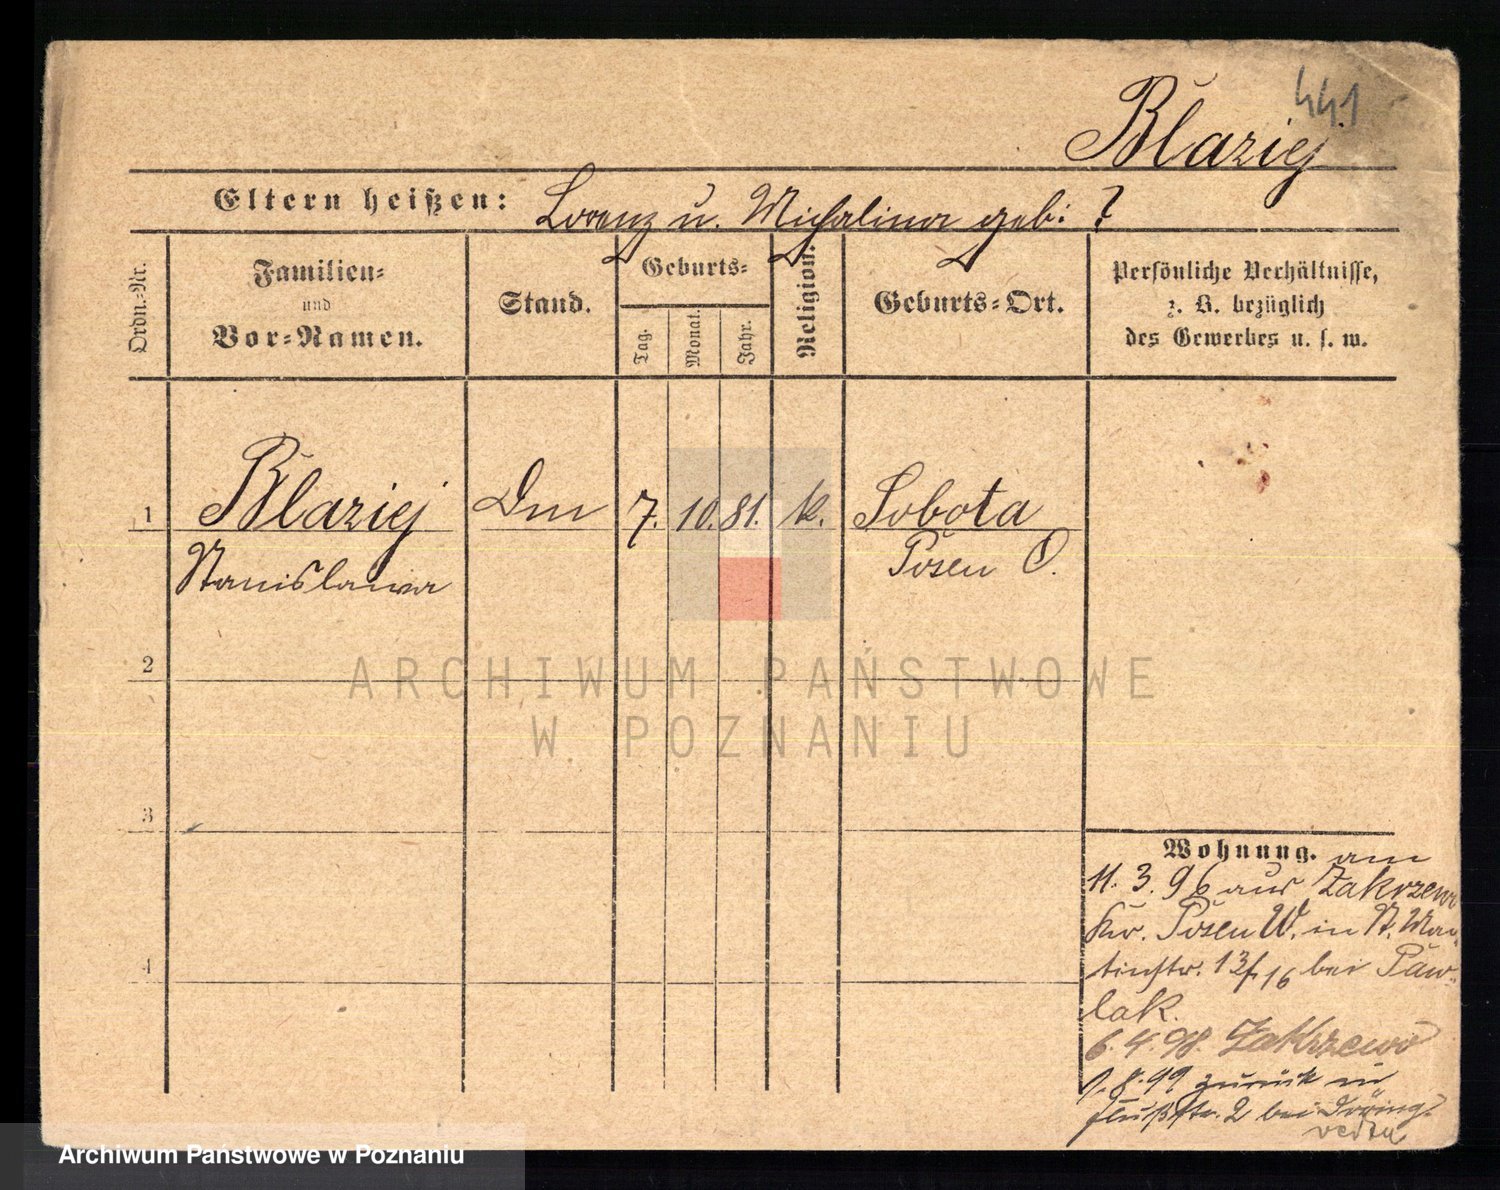 441
Blaziej
Eltern heißen: Lorenz u. Michalina geb: ?
Ordn.-Nr.
Familien-
und
Vor-Namen.
Stand.
Geburts-
Tag.
Monat.
Jahr.
Religion.
Geburts-Ort.
Persönliche Verhältnisse,
z. B. bezüglich
des Gewerbes u. s. w.
1 Blaziej Dm 7. 10. 81. k. Sobota
Stanislawa Posen O.
2
3
4
Wohnung. am
11. 3. 96 aus Zakrzewo
Kr. Posen W. in St. Mar-
tinstr. 13/16 bei Paw-
lak.
6. 4. 98. Zakrzewo
9. 8. 99 zurück in
Flußstr. 2 bei
ARCHIWUM PAŃSTWOWE
W POZNANIU
Archiwum Państwowe w Poznaniu